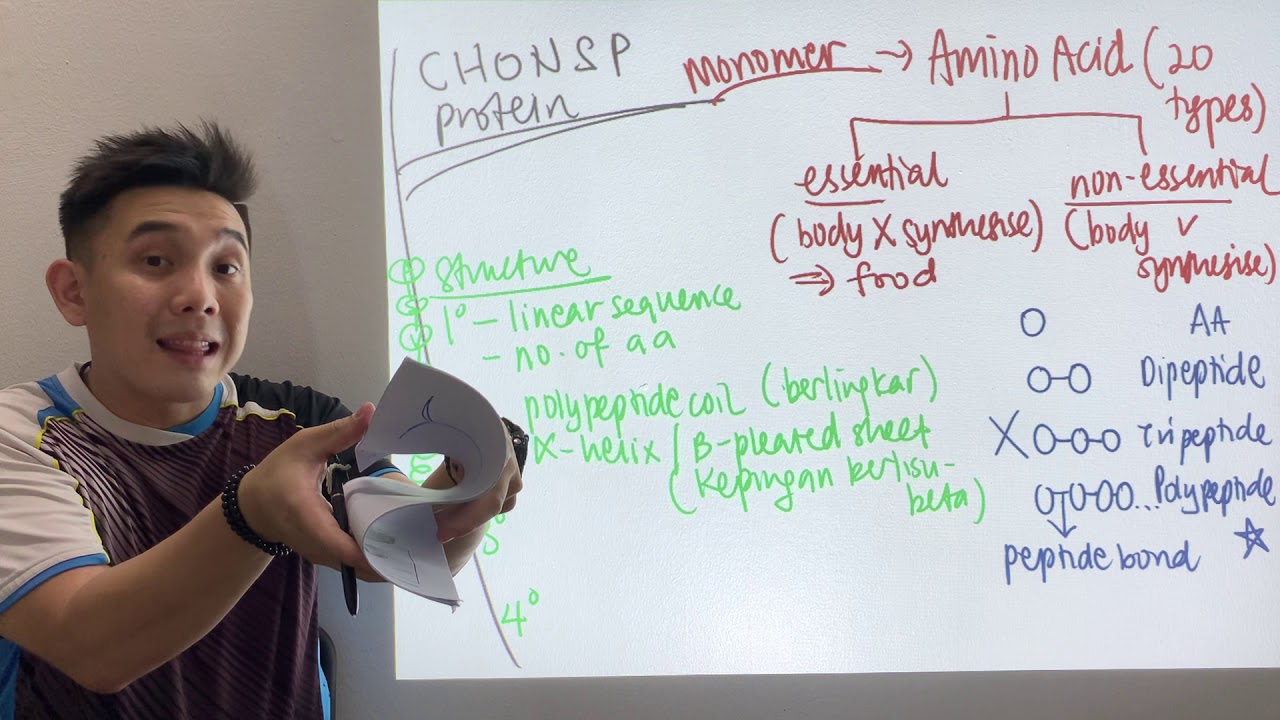 CHONSP
protein
monomer → Amino Acid (20
types)
essential
(body X synthesise)
⇒ food
non-essential
(body ✓
synthesise)
structure
1° - linear sequence
- no. of aa
polypeptide coil (berlingkar)
α-helix / B-pleated sheet
(Kepingan berlisu-
beta)
3°
4°
O AA
O-O Dipeptide
X O-O-O tripeptide
O-O-O-O... Polypeptide
peptide bond ☆